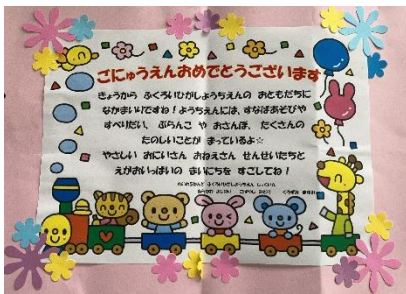 ごにゅうえんおめでとうございます
きょうから ふくろいひがしようちえんの おともだちに
なかまいりですね！ようちえんには、すなばあそびや
すべりだい、ぶらんこ や おさんぽ、たくさんの
たのしいことが まっているよ☆
やさしい おにいさん おねえさん せんせいたちと
えがおいっぱいの まいにちを すごしてね！